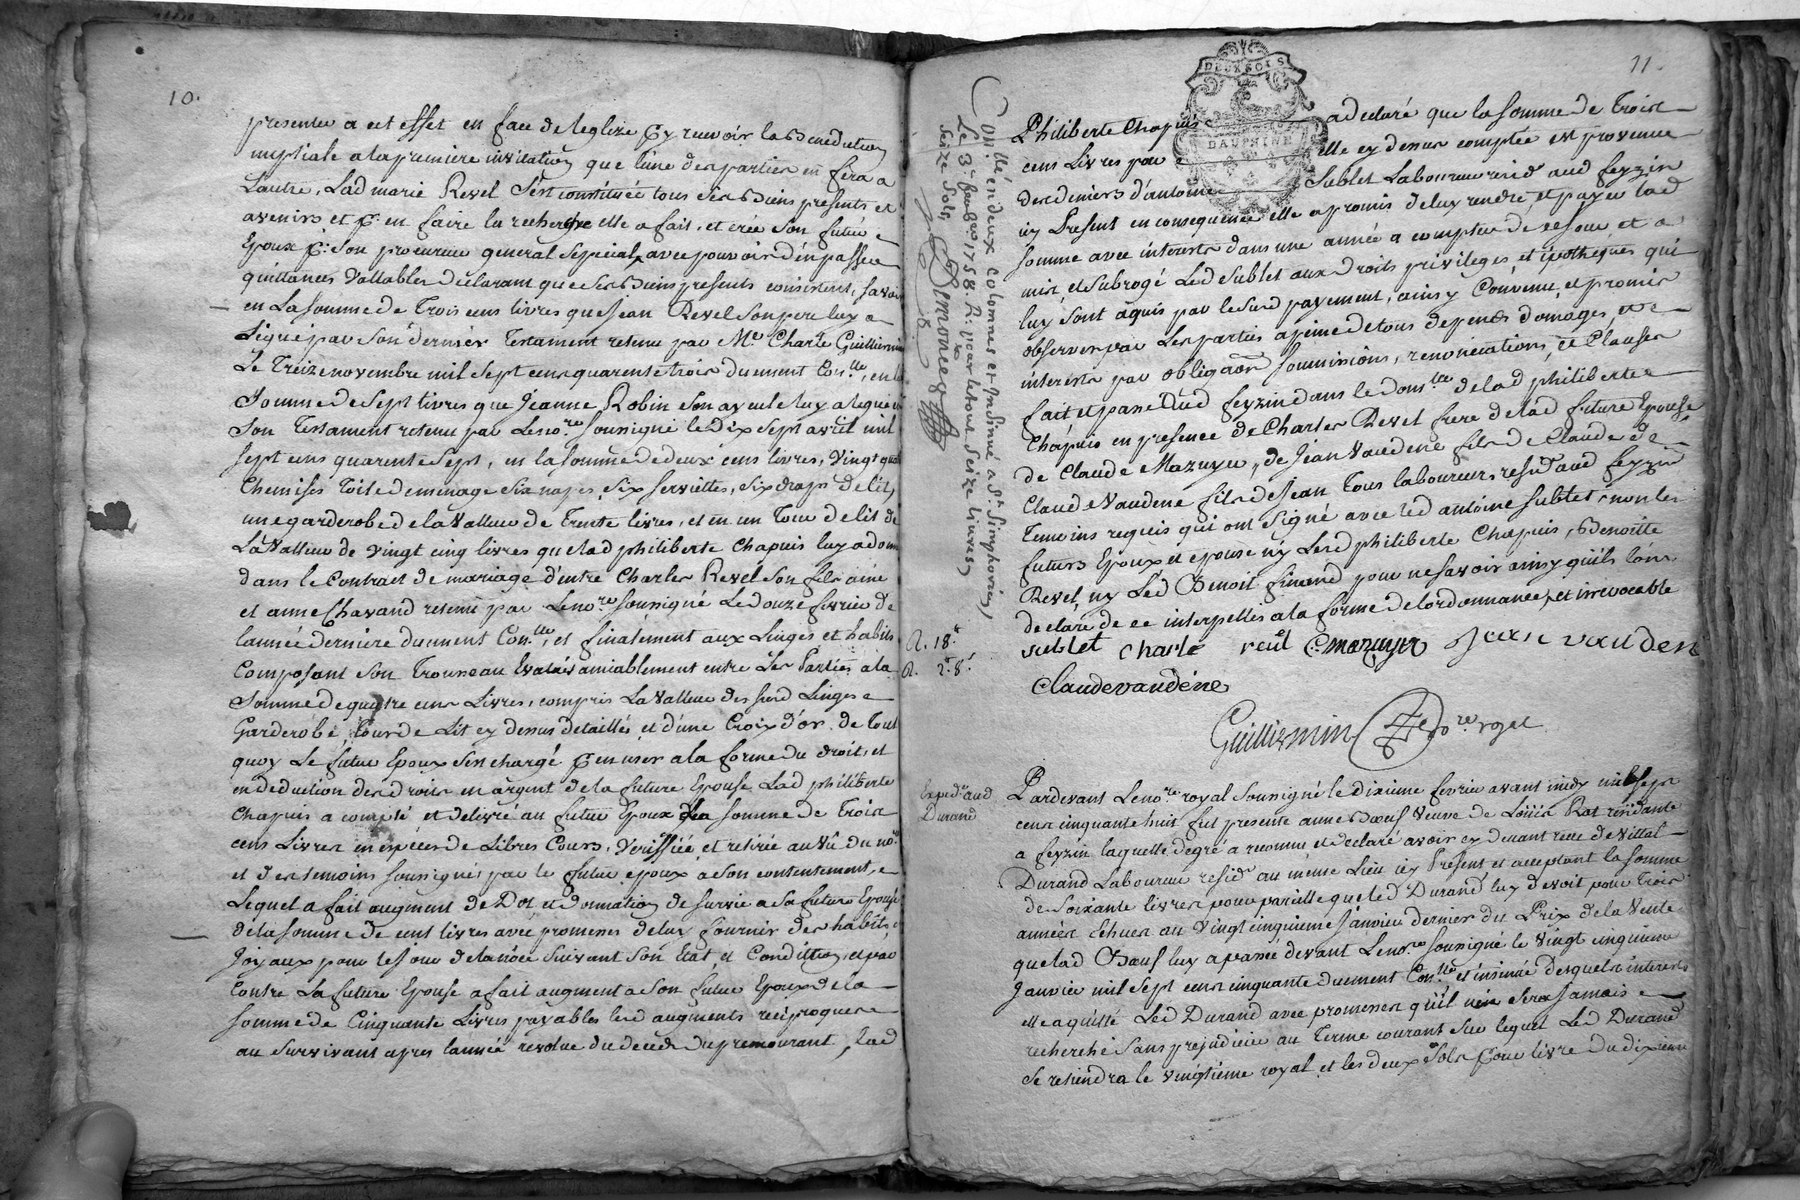 10.
presenter a cet effet en face de leglize Pr y recevoir la Benediction
nuptiale a la premiere invitation que l'une des parties en fera a
L'autre, Lad marie Revel s'est constituée tous ses Biens presents et
avenirs et Pr en faire la recherche elle a fait, et crée son futur
Epoux Pr son procureur general & special, avec pouvoir d'en passer
quittances Vallables declarant que ses Biens presents consistent, savoir
en La somme de Trois cens livres que Jean Revel son pere luy a
Legué par son dernier Testament retenu par Me. Charle Guilliermin
Le Treize novembre mil sept cens quarente trois duement Conllé, en la
Somme de sept livres que Jeanne Robin son ayeule luy a legué
Son Testament retenu par Le nore soussigné le dix sept avril mil
sept cens quarente sept, en la somme de deux cens livres, Vingt quatre
Chemises Toile de menage six napes, six serviettes, six draps de lit,
une garderobe de la Valleur de Trente livres, et en un Tour de lit de
La Valleur de Vingt cinq livres que lad philiberte Chapuis luy a donné
dans le Contract de mariage d'entre Charles Revel son fils ainé
et anne Chavand retenu par Le nore soussigné Le douze fevrier de
l'année derniere duement Conllé, et finalement aux Linges et habits
Composant son Trousseau Evalués amiablement entre Les Parties a la
Somme de quatre cens Livres, compris La Valleur des susd Linges
Garderobe, Tour de Lit cy dessus detaillés, et d'une Croix d'or. de Tout
quoy Le futur Epoux s'en chargé Pr en user a la forme du droit, et
en deduction des droits en argent de la future Epouse Lad philiberte
Chapuis a compté et delivré au futur Epoux la somme de Trois
cens Livres en espéces de Libres Cours, Veriffiée et retirée au Vû du nore
et des temoins soussignés par le futur epoux a son contentement,
Lequel a fait augment de Dot et donnation de survie a sa future Epouse
de la somme de cent livres avec promesses de luy fournir des habits,
Joyaux pour le jour de la noce suivant son Etat, et Condition, et par
Contre La future Epouse a fait augment a son futur Epoux de la
somme de Cinquante Livres payables lesd augments reciproques
au survivant apres l'année revolue du decéds du premourant, lad
11.
DEUX SOLS
DAUPHINÉ
Conllé en deux colomnes et Insinué a St Simphorien,
Le 3e fevrier 1758. R: vicar et tout seize livres
seize sols
Demoncez
Philiberte Chapuis a declaré que la somme de Trois
cens Livres par elle cy dessus comptée est provenue
des deniers d'antoine Sublet Laboureur resid aud feyzin
icy Present en consequence elle a promis de luy rendre, et payer lad
somme avec interests dans une année a compter de ce jour, et a
mis, et subrogé Led Sublet aux droits privileges, et ipotheques qui
luy sont aquis par le susd payement, ainsy Convenu, et promis
observer par Les parties a peine de tous depends domages et
interests par obligaõn soumissions, renonciations, et Clauses
fait et passé aud feyzin dans le domlle de lad philiberte
Chapuis en presence de Charles Revel frere de lad future Epouse
de Claude Mazuyer, de Jean Vaudene fils de Claude et
Claude Vaudene fils de Jean Tous laboureurs resids aud feyzin
Temoins requis qui ont signé avec led antoine Sublet, non les
futurs Epoux et epouse ny Lesd philiberte Chapuis, Benoitte
Revel, ny Led Benoit finand pour ne savoir ainsy qu'ils l'ont
declaré de ce interpellés a la forme de l'ordonnance, et irrevocable
A. 18
R. 2. 8
sublet charle reuel Cmazuyer Jean vaudene
Claudevaudéne
Guilliermin nore royal
Expedié aud
Durand
Pardevant Le nore royal soussigné le dixieme fevrier avant midy mil sept
cens cinquante huit fut presente anne Bœuf Veuve de Loüis Rat residante
a feyzin laquelle de gré a reconnu et declaré avoir cy devant receu de Vital
Durand Laboureur residt au meme Lieu icy Present et acceptant la somme
de soixante livres pour pareille que led Durand luy devoit pour Trois
années echues au Vingt cinquieme Janvier dernier du Prix de la Vente
que lad Bœuf luy a passée devant Le nore soussigné le Vingt cinquieme
Janvier mil sept cens cinquante duement Conllé et insinué desquels interests
elle a quitté Led Durand avec promesses qu'il n'en sera jamais
recherché sans prejudice au Terme courant sur lequel Led Durand
se retiendra le vingtieme royal et les deux sols pour livre du dixieme